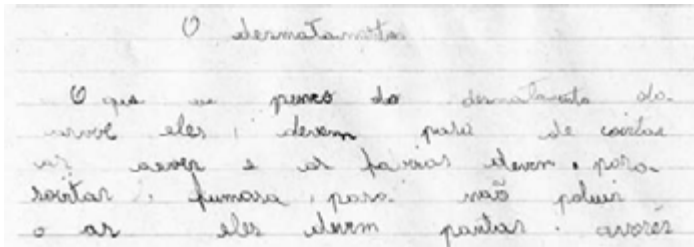 O desmatamento
O que eu penso do desmatamento da
arvore eles, devem para de cortar
as aevores e as favricas devem, para
soutar, fumasa, para não poluir
o as eles devem plantar. arvores